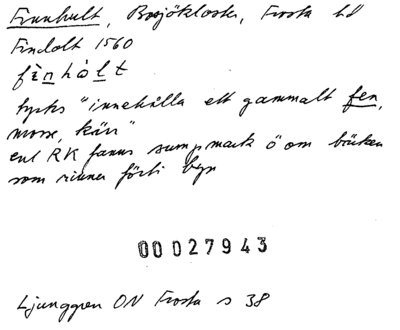 Finnhult, Bosjökloster, Frosta hd
Findolt 1560
fìnhòlt
tycks "innehålla ett gammalt fen,
mosse, kärr"
enl RK fanns sumpmark ö om bäcken
som rinner förbi byn
00027943
Ljunggren ON Frosta s 38